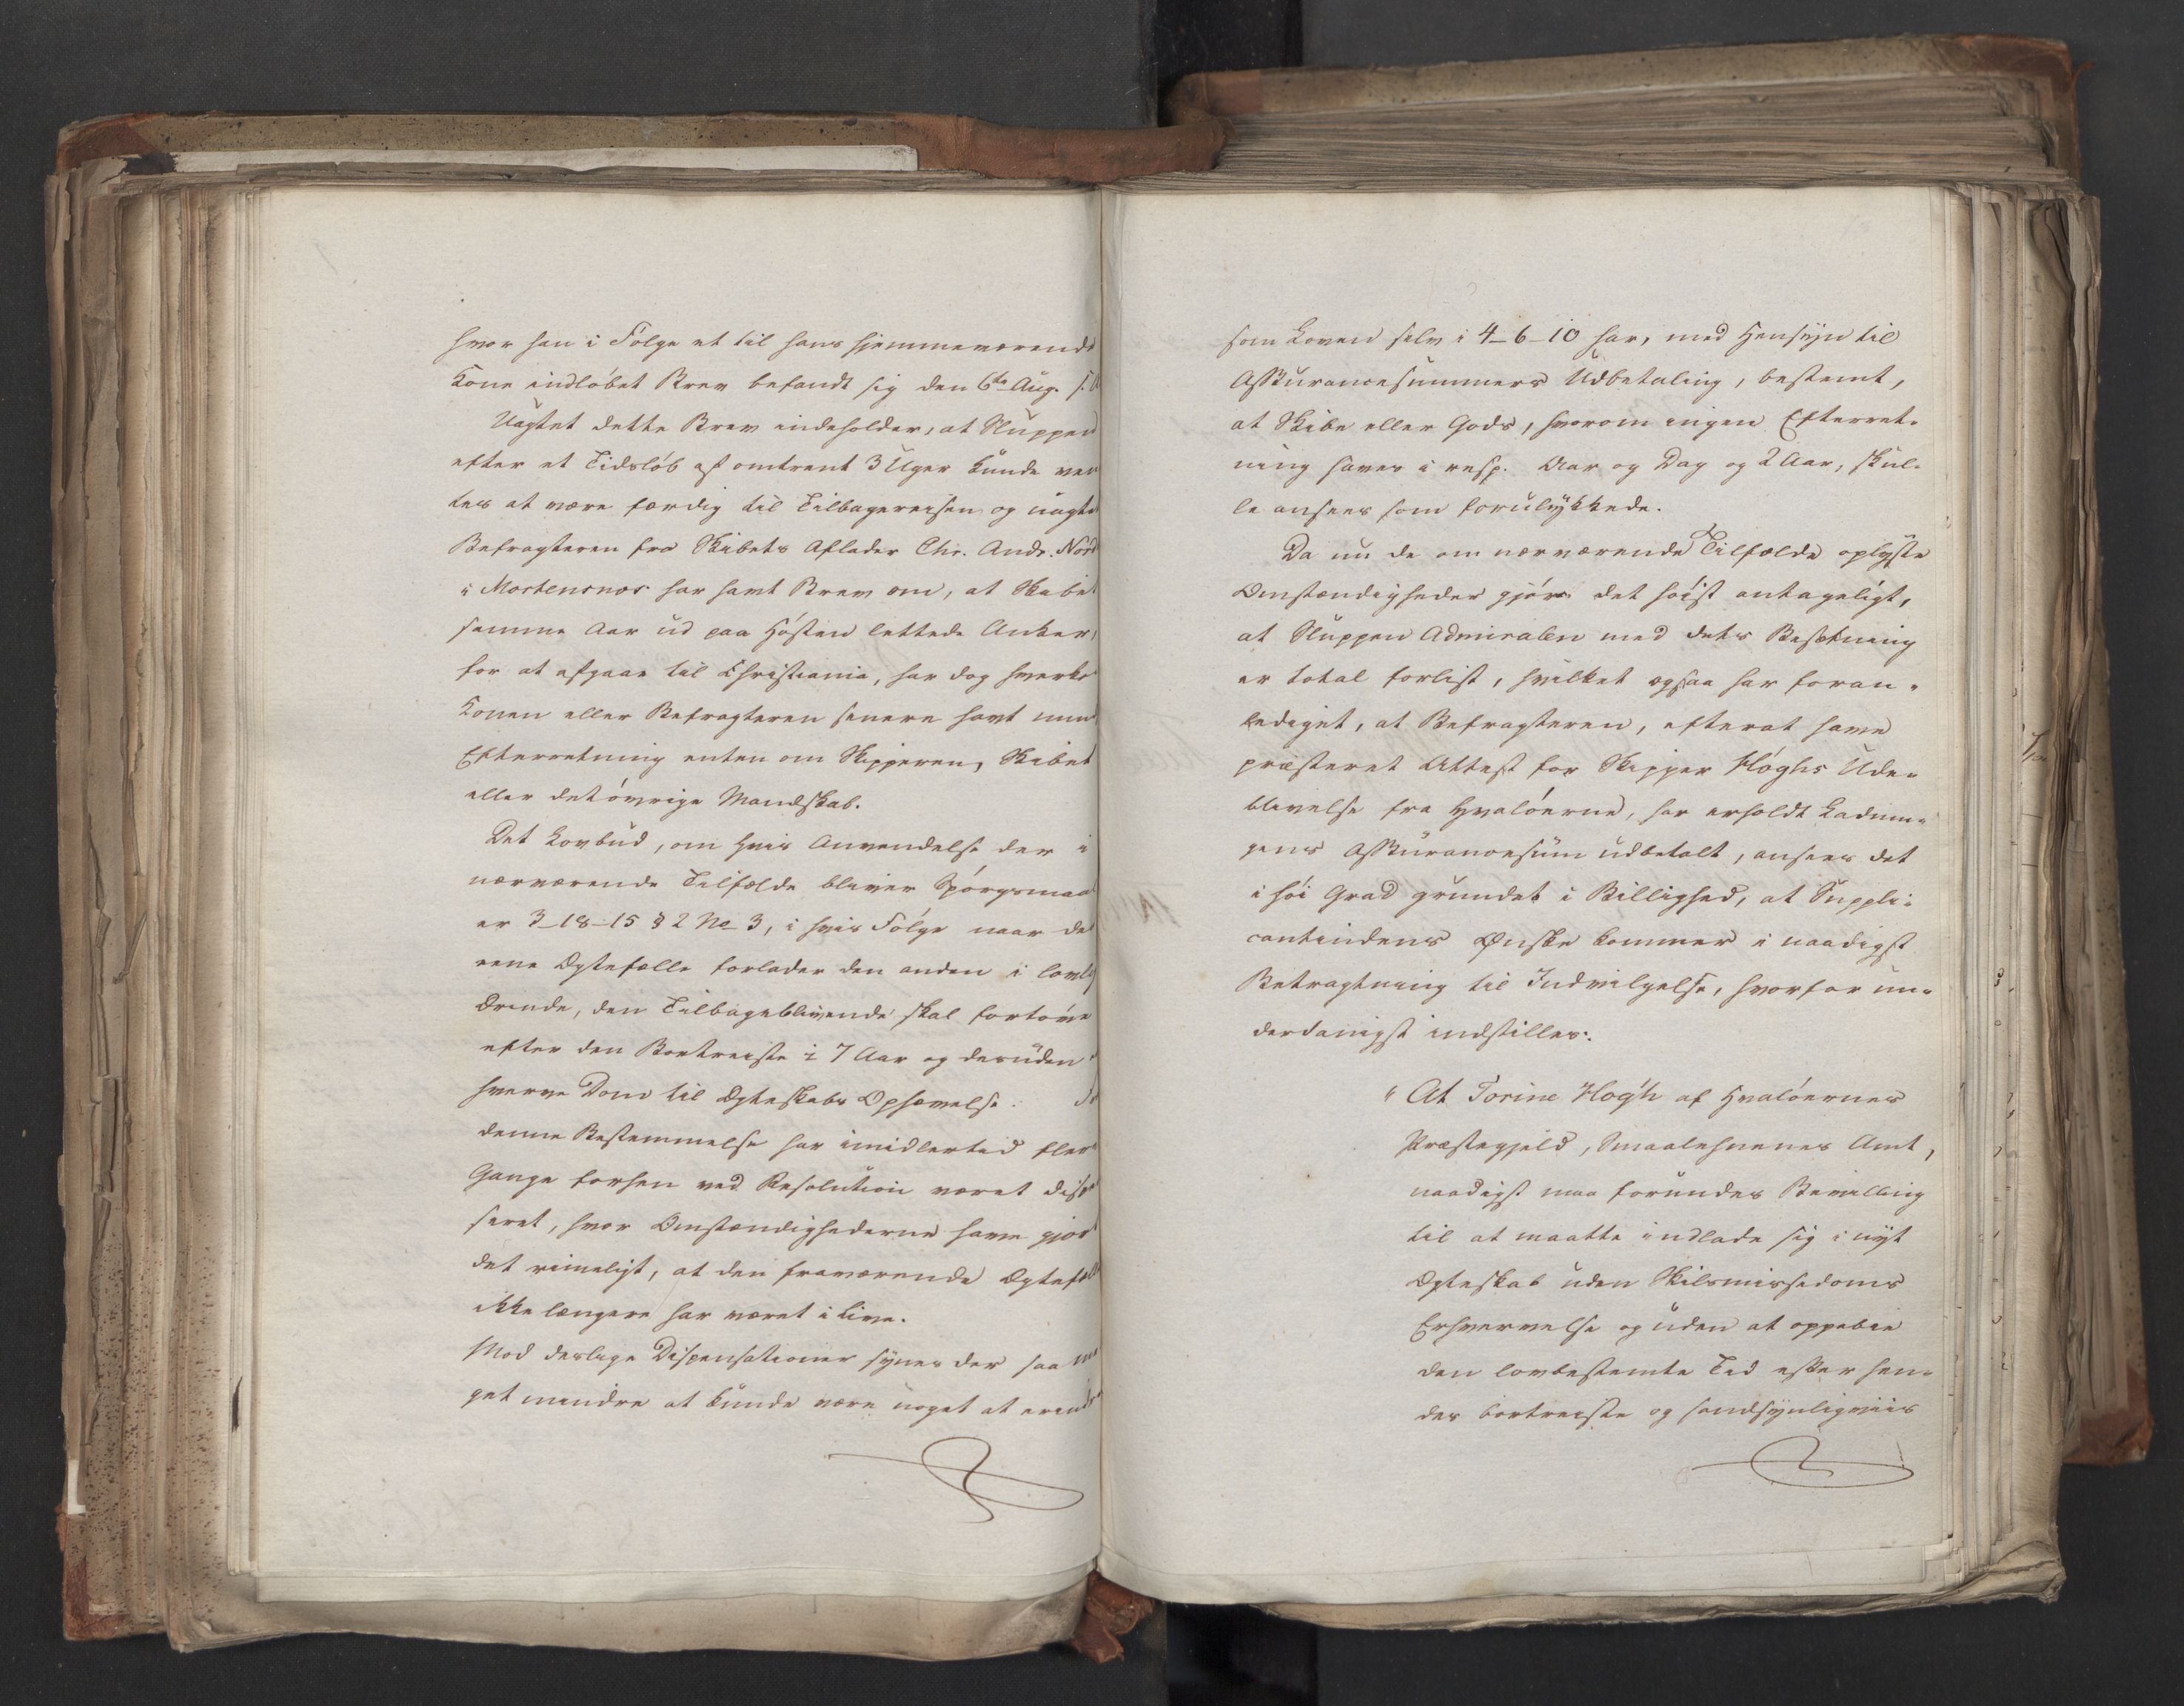 hvor han i Følge et til hans hjemmeværende
Kone indløbet Brev befandt sig den 6te Aug. s. A
Uagtet dette Brev indeholder, at Sluppen
efter et Tidsløb af omtrent 3 Uger kunde ven
tes at være færdig til Tilbagereisen og uagtet
Befragteren fra Skibets Aflader Chr. Andr. Nord
i Mortensnæs har havt Brev om, at Skibet
samme Aar ud paa Høsten lettede Anker,
for at afgaae til Christiania, har dog hverken
Konen eller Befragteren senere havt nu
Efterretning enten om Skipperen, Skibet
eller det øvrige Mandskab.
Det Lovbud, om hvis Anvendelse der i
nærværende Tilfælde bliver Spørgsmaal
er 3-18-15 § 2 No 3, i hvis Følge naar den
eene Ægtefælle forlader den anden i lovlig
Ærinde, den Tilbageblivende skal fortøve
efter den Bortreiste i 7 Aar og desuden
hverve Dom til Ægteskabs Ophævelse.
denne Bestemmelse har imidlertid flere
Gange forhen ved Resolution været dispen
seret, hvor Omstændighederne have gjort
det rimeligt, at den fraværende Ægtefælle
ikke længere har været i Live.
Mod deslige Dispensationer synes der saa me
get mindre at kunde være noget at erindre
som Loven selv i 4-6-10 har, med Hensyn til
Assurancesummers Udbetaling, bestemt,
at Skibe eller Gods, hvorom ingen Efterret-
ning haves i resp. Aar og Dag og 2 Aar, skul-
le ansees som forulykkede.
Da nu de om nærværende Tilfælde oplyste
Omstændigheder gjøre det høist antageligt,
at Sluppen Admiralen med dets Besetning
er total forlist, hvilket ogsaa har foran-
lediget, at Befragteren, efterat have
præsteret Attest for Skipper Høghs Ude-
blivelse fra Hvaløerne, har erholdt Ladnin-
gens Assurancesum udbetalt, ansees det
i høi Grad grundet i Billighed, at Suppli-
cantindens Ønske kommer i naadigst
Betragtning til Indvilgelse, hvorfor un-
derdanigst indstilles:
" At Torine Høgh af Hvaløernes
Præstegjeld, Smaalehnenes Amt,
naadigst maa forundes Bevilling
til at maatte indlade sig i nyt
Ægteskab uden Skilsmissedoms
Erhvervelse og uden at oppebie
den lovbestemte Tid efter hen-
des bortreiste og sandsynligviis